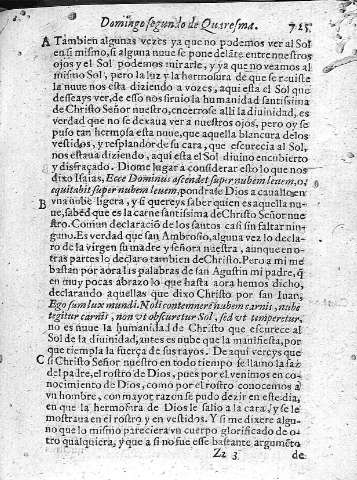 Domingo segundo de Quaresma. 725
A Tambien algunas vezes ya que no podemos ver al Sol
en si mismo, si alguna nuue se pone delãte entre nuestros
ojos y el Sol podemos mirarle, y ya que no veamos al
mismo Sol, pero la luz y la hermosura de que se reuiste
la nuue nos esta diziendo a vozes, aqui esta el Sol que
desseays ver, de esso nos siruio la humanidad santissima
de Christo Señor nuestro, encerrose alli la diuinidad, es
verdad que no se dexaua ver a nuestros ojos, pero oy se
puso tan hermosa esta nuue, que aquella blancura de los
vestidos, y resplandor de su cara, que escurecia al Sol,
nos estaua diziendo, aqui esta el Sol diuino encubierto
y disfraçado. Diome lugar a considerar esto lo que nos
dixo Isaias, Ecce Dominus ascendet super nubem leuem, ò
equitabit super nubem leuem, pondrase Dios a cauallo en
B vna nube ligera, y si quereys saber quien es aquella nu-
ue, sabed que es la carne santissima de Christo Señor nue-
stro. Comun declaraciõ de los santos casi sin faltar nin-
guno. Es verdad que san Ambrosio, alguna vez lo decla-
ro de la virgen su madre y señora nuestra, aunque en o-
tras partes lo declaro tambien de Christo. Pero a mi me
bastan por aora las palabras de san Agustin mi padre, q̃
en muy pocas abrazo lo que hasta aora hemos dicho,
declarando aquellas que dixo Christo por san Iuan,
Ego sum lux mundi. Noli contemnere nubem carnis, nube
tegitur carnis, non vt obscuretur Sol, sed vt temperetur,
no es nuue la humanidad de Christo que escurece al
Sol de la diuinidad, antes es nube que la manifiesta, por
que tiempla la fuerça de sus rayos. De aqui vereys que
C si Christo Señor nuestro en todo tiempo se llamo la faz
del padre, el rostro de Dios, pues por el venimos en co-
nocimiento de Dios, como por el rostro conocemos a
vn hombre, con mayor razon se pudo dezir en este dia,
en que la hermosura de Dios le salio a la cara, y se le
mostraua en el rostro y en vestidos. Y si me dixere algu-
no que lo mismo pareciera vn cuerpo glorificado de o-
tro qualquiera, y que a si no fue esse bastante argumẽto
Zz 3 de